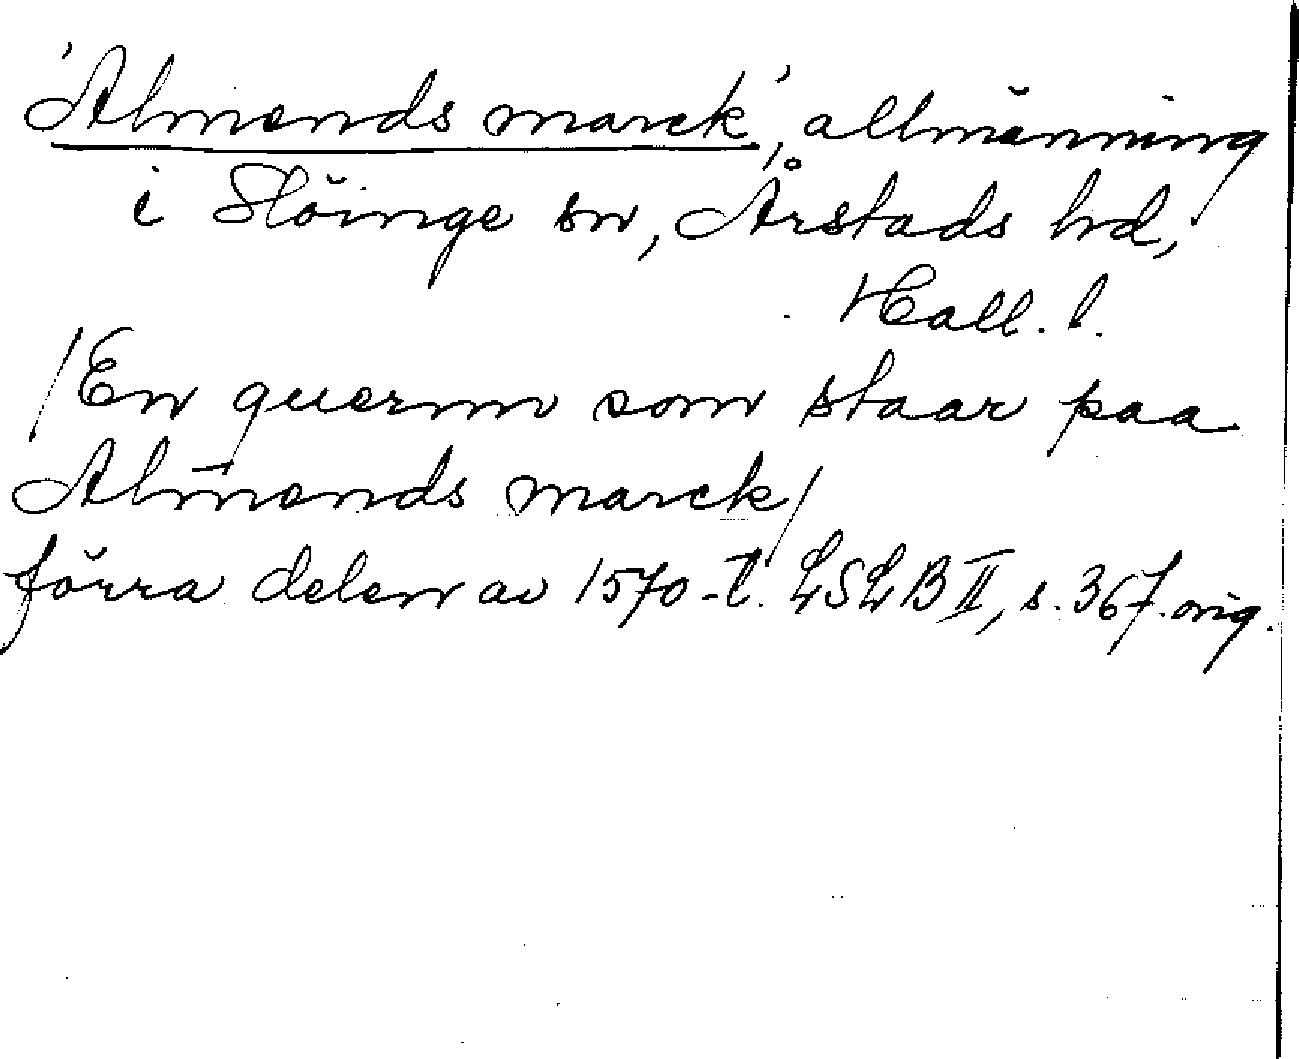 'Almends marck', allmänning
i Slöinge sn, Årstads hd,
Hall. l.
/En quernn som staar paa
Alm̄ends marck/
förra delen av 1570-t. LSLB II, s. 367. orig.